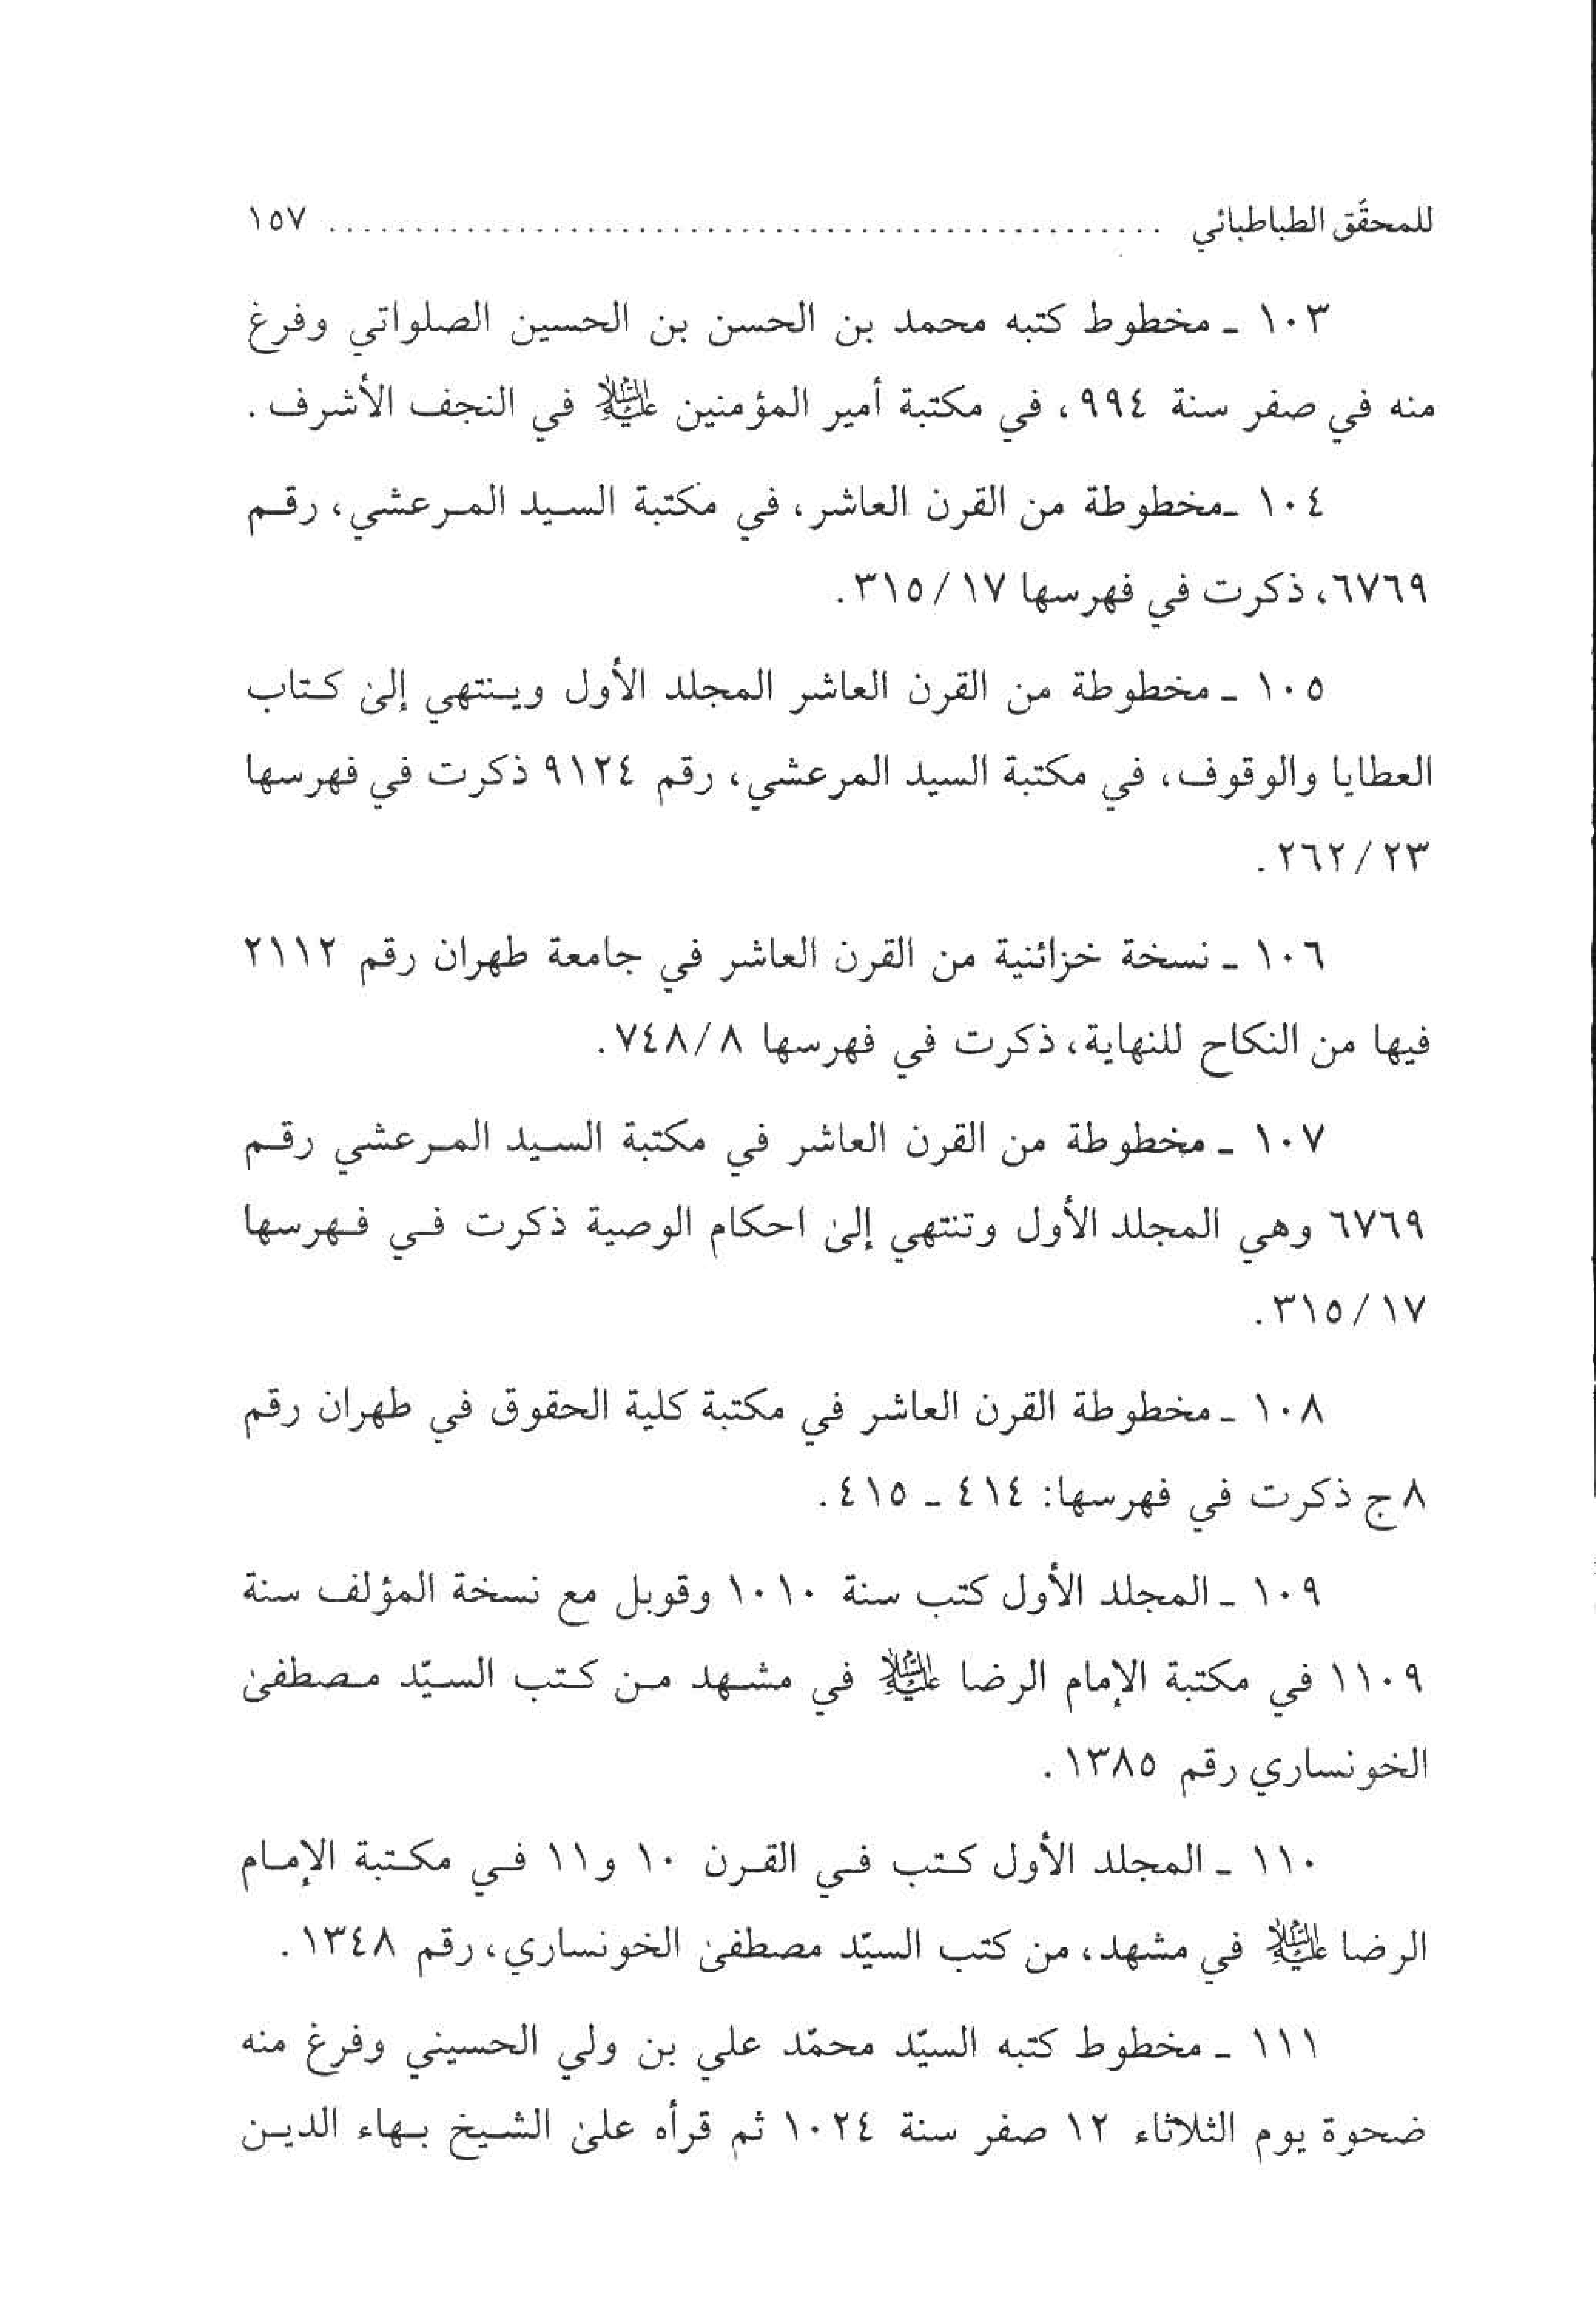 للمحقّق الطباطبائي ........................................................ ١٥٧
١٠٣ ـ مخطوط كتبه محمد بن الحسن بن الحسين الصلواتي وفرغ
منه في صفر سنة ٩٩٤، في مكتبة أمير المؤمنين عليه السلام في النجف الأشرف.
١٠٤ ـ مخطوطة من القرن العاشر، في مكتبة السيد المرعشي، رقم
٦٧٦٩، ذكرت في فهرسها ١٧/ ٣١٥.
١٠٥ ـ مخطوطة من القرن العاشر المجلد الأول وينتهي إلىٰ كتاب
العطايا والوقوف، في مكتبة السيد المرعشي، رقم ٩١٢٤ ذكرت في فهرسها
٢٣/ ٢٦٢.
١٠٦ ـ نسخة خزائنية من القرن العاشر في جامعة طهران رقم ٢١١٢
فيها من النكاح للنهاية، ذكرت في فهرسها ٨/ ٧٤٨.
١٠٧ ـ مخطوطة من القرن العاشر في مكتبة السيد المرعشي رقم
٦٧٦٩ وهي المجلد الأول وتنتهي إلىٰ احكام الوصية ذكرت في فهرسها
١٧/ ٣١٥.
١٠٨ ـ مخطوطة القرن العاشر في مكتبة كلية الحقوق في طهران رقم
٨ ج ذكرت في فهرسها: ٤١٤ ـ ٤١٥.
١٠٩ ـ المجلد الأول كتب سنة ١٠١٠ وقوبل مع نسخة المؤلف سنة
١١٠٩ في مكتبة الإمام الرضا عليه السلام في مشهد من كتب السيّد مصطفىٰ
الخونساري رقم ١٣٨٥.
١١٠ ـ المجلد الأول كتب في القرن ١٠ و١١ في مكتبة الإمام
الرضا عليه السلام في مشهد، من كتب السيّد مصطفىٰ الخونساري، رقم ١٣٤٨.
١١١ ـ مخطوط كتبه السيّد محمّد علي بن ولي الحسيني وفرغ منه
ضحوة يوم الثلاثاء ١٢ صفر سنة ١٠٢٤ ثم قرأه علىٰ الشيخ بهاء الدين